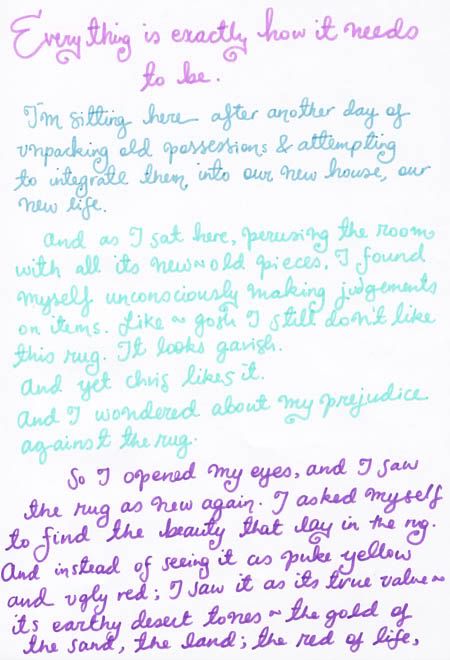 Everything is exactly how it needs
to be.
I'm sitting here after another day of
unpacking old possessions & attempting
to integrate them into our new house, our
new life.
And as I sat here, perusing the room
with all its new~old pieces, I found
myself unconsciously making judgements
on items. Like ~ gosh I still don't like
this rug. It looks garish.
And yet Chris likes it.
And I wondered about my prejudice
against the rug.
So I opened my eyes, and I saw
the rug as new again. I asked myself
to find the beauty that lay in the rug.
And instead of seeing it as puke yellow
and ugly red; I saw it as its true value~
its earthy desert tones ~ the gold of
the sand, the land; the red of life,